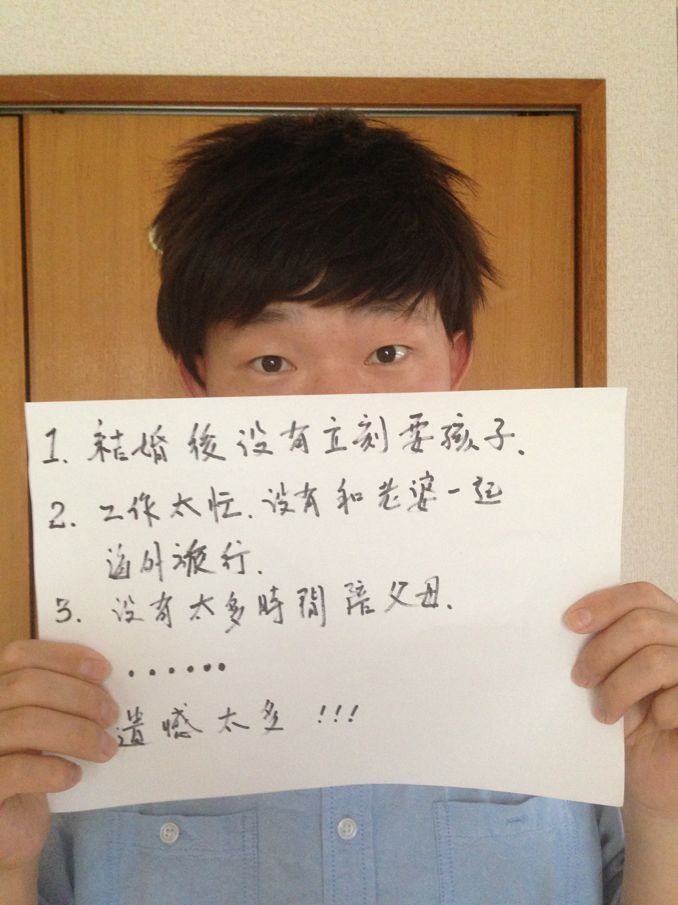 1. 結婚後没有立刻要孩子.
2. 工作太忙.没有和老婆一起
海外旅行.
3. 没有太多時間陪父母.
......
遺憾太多!!!